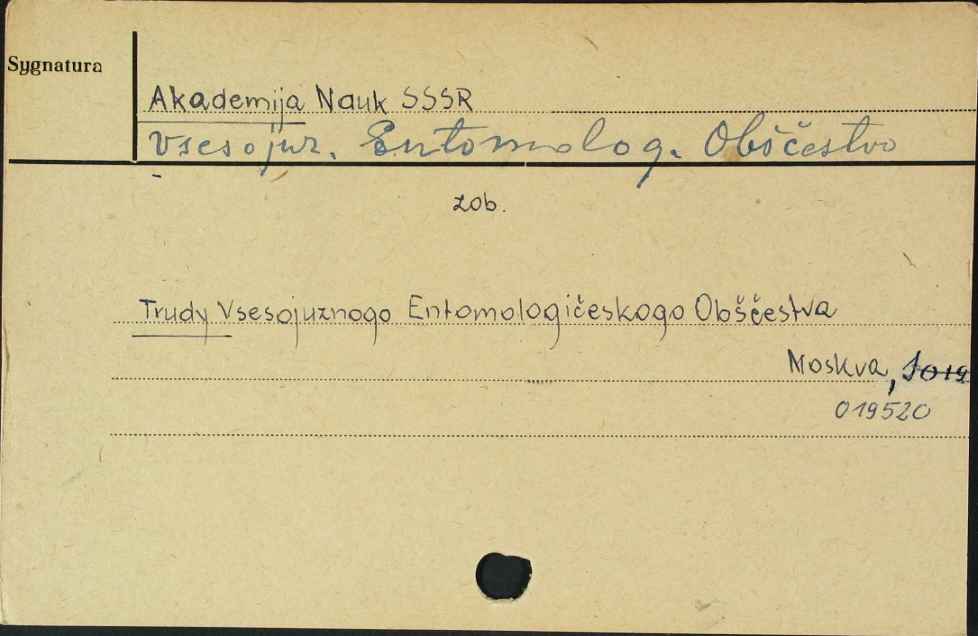 Sygnatura
Akademija Nauk SSSR
Vsesojuz. Entomolog. Obščestvo
zob.
Trudy Vsesojuznogo Entomologičeskogo Obščestva
Moskva,
019520